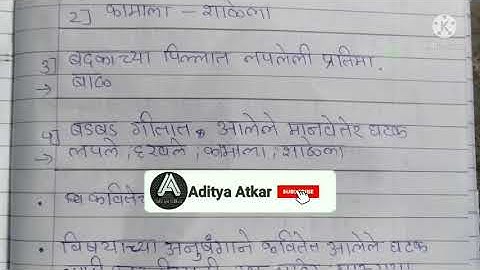 2] कामाला – शाळेला
3] बदकाच्या पिल्लात लपलेली प्रतिमा.
→ बाळ
4] बडबड गीतात आलेले मानवेतर घटक
→ लपले, हरवले, कामाला, शाळेला
• कवितेच
Aditya Atkar SUBSCRIBE
• विषयाच्या अनुषंगाने कवितेत आलेले घटक